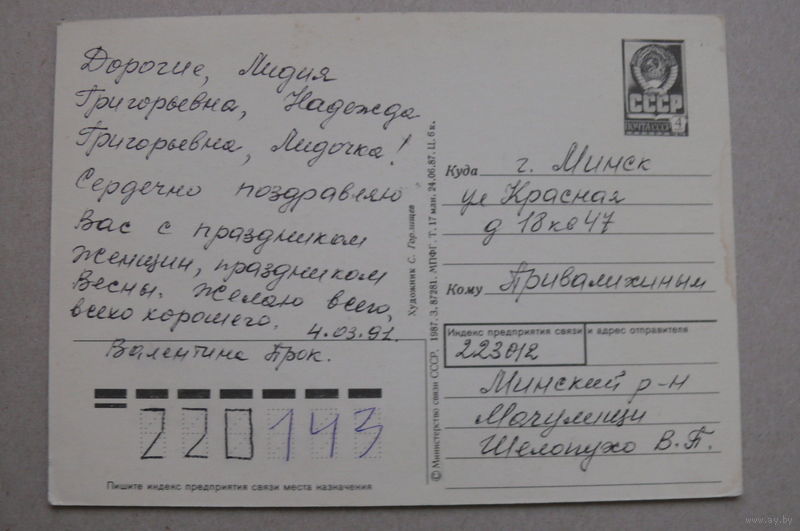 Дорогие, Лидия
Григорьевна, Надежда
Григорьевна, Лидочка!
Сердечно поздравляю
Вас с праздником
женщин, праздником
Весны. Желаю всего,
всего хорошего.
4.03.91.
Валентина Прок.
220143
Пишите индекс предприятия связи места назначения
© Министерство связи СССР, 1987. З. 87281. МПФГ. Т. 17 млн. 24.06.87. Ц. 6 к.
Художник С. Горлищев
СССР
ПОЧТА СССР 4
Куда г. Минск
ул Красная
д 18 кв 47
Кому Привалихиным
Индекс предприятия связи и адрес отправителя
223012
Минский р-н
Мачулищи
Шелопухо В. П.
www.ay.by